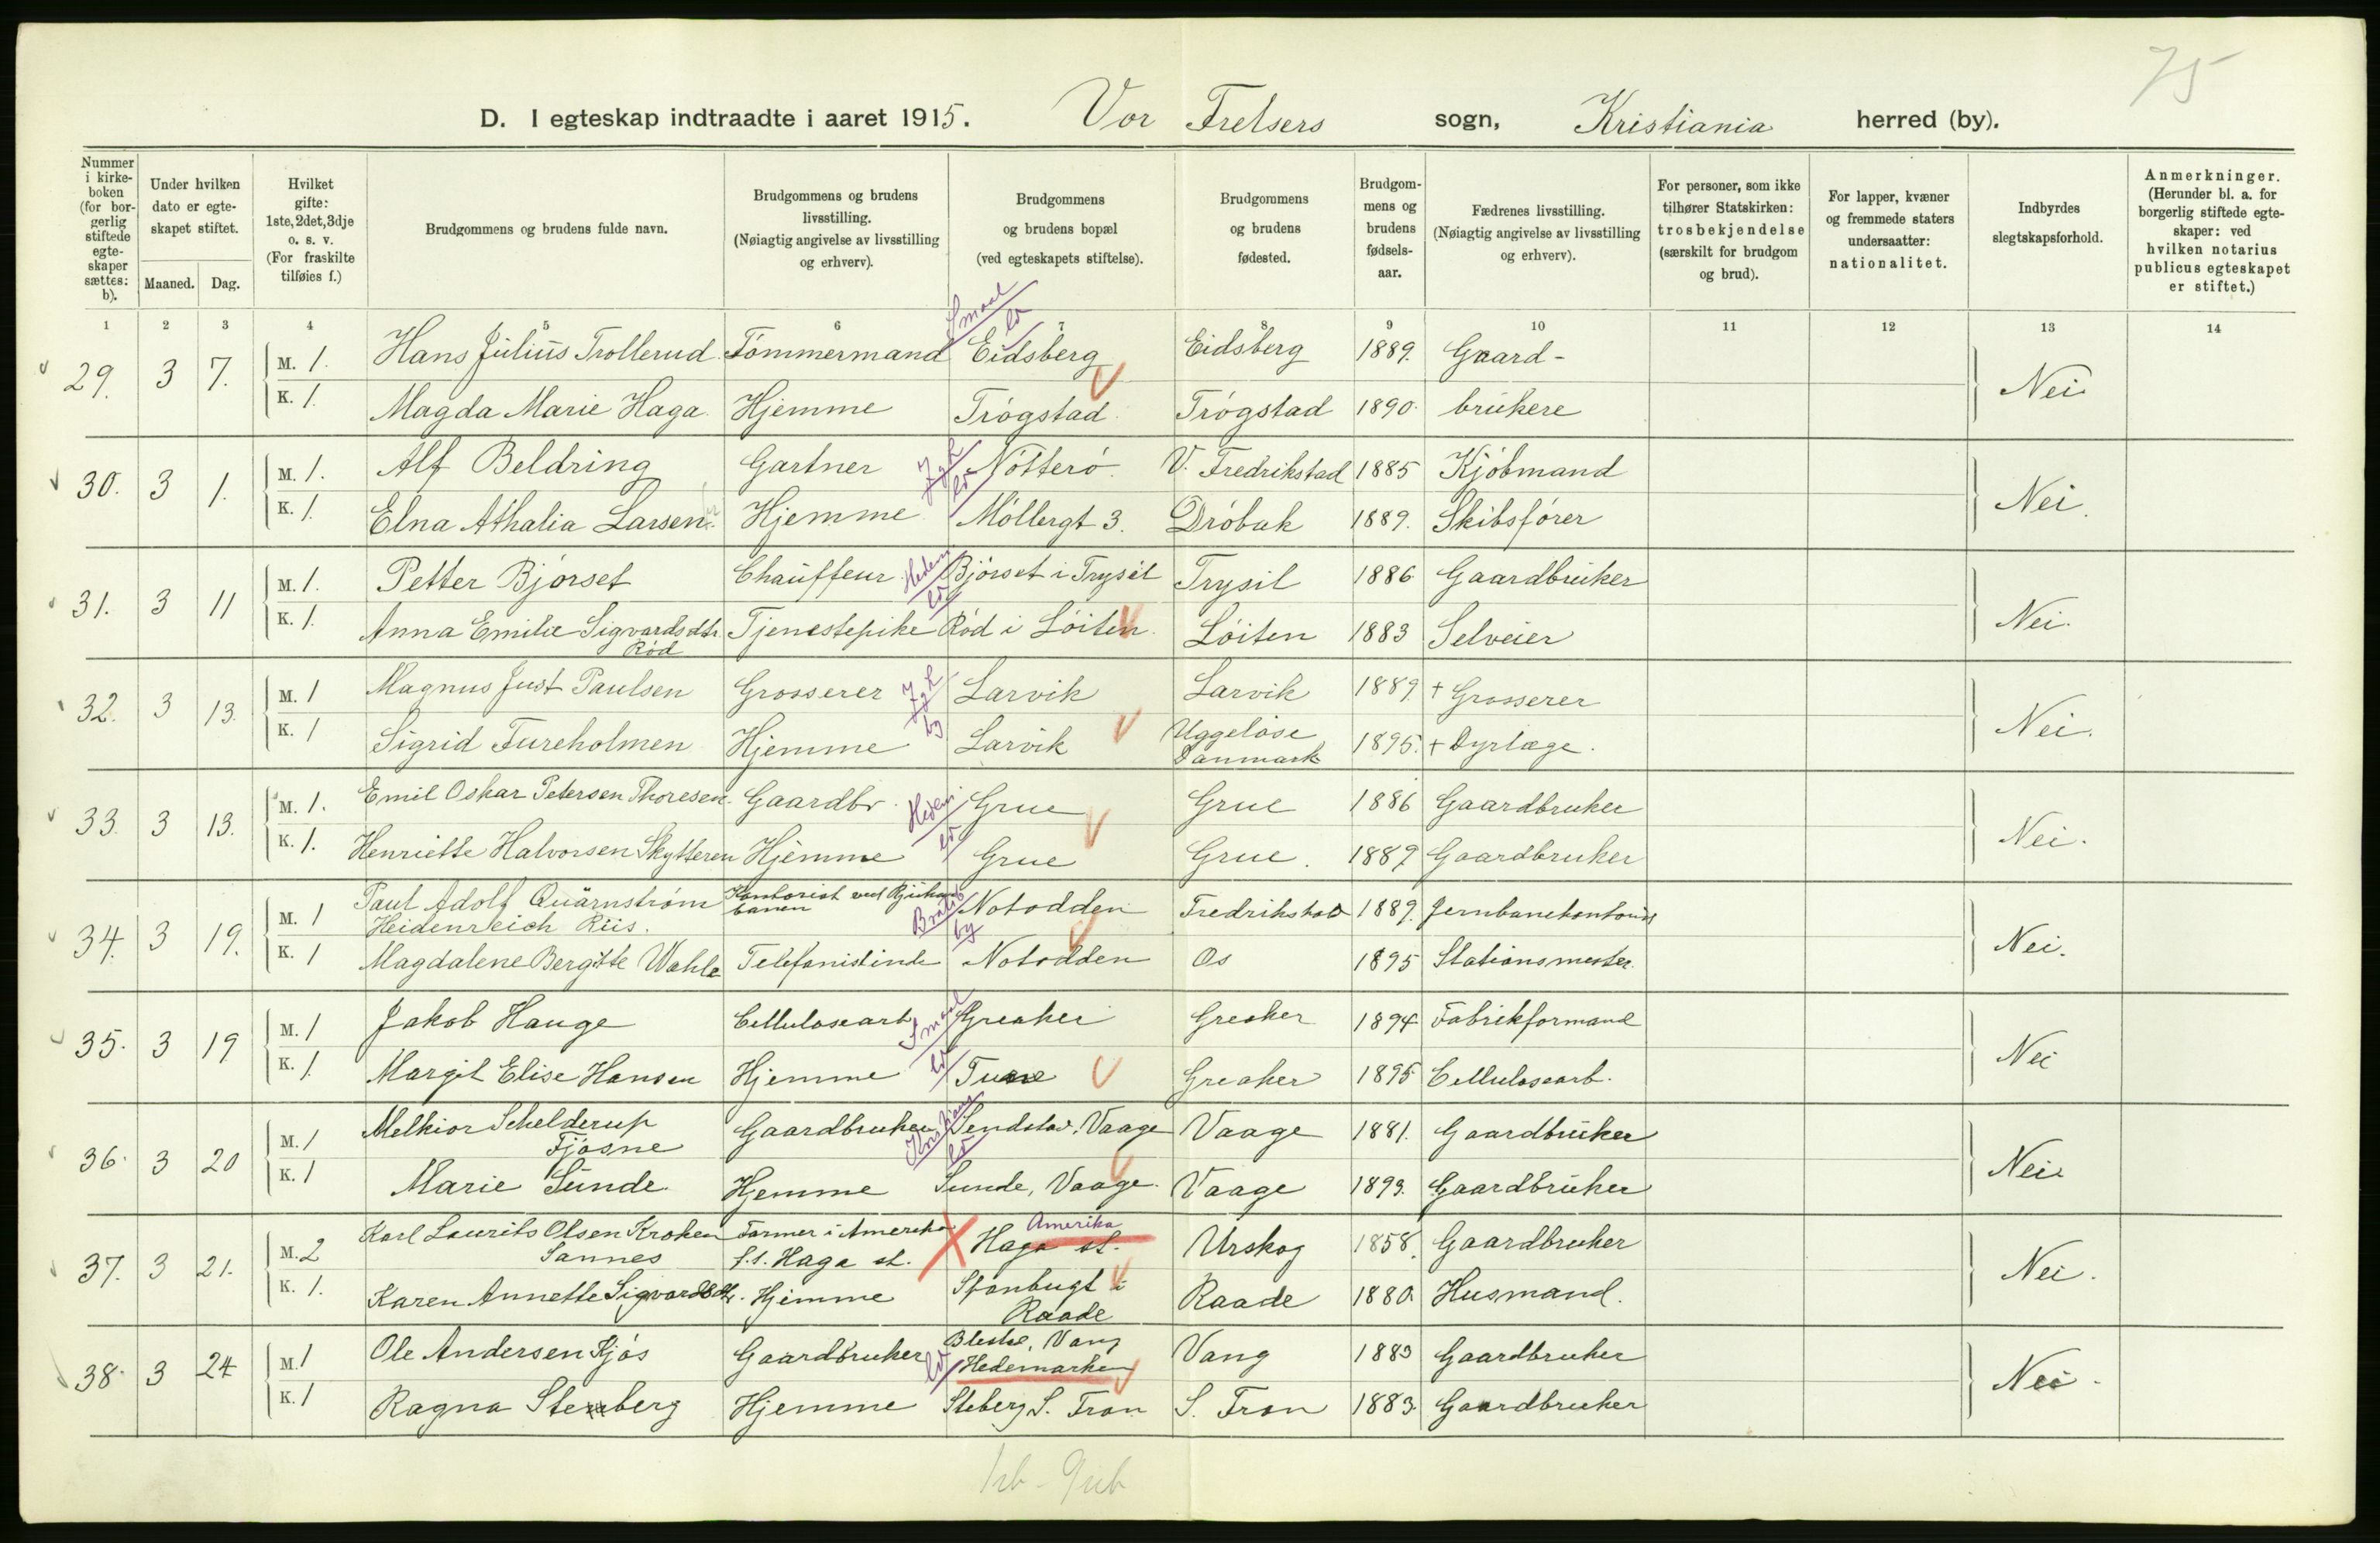 75
D. I egteskap indtraadte i aaret 1915. Vor Frelsers sogn, Kristiania herred (by).
Nummer i kirke-boken (for bor-gerlig stiftede egte-skaper sættes: b).
Under hvilken dato er egte-skapet stiftet.
Maaned. Dag.
Hvilket gifte: 1ste, 2det, 3dje o. s. v. (For fraskilte tilføies f.)
Brudgommens og brudens fulde navn.
Brudgommens og brudens livsstilling. (Nøiagtig angivelse av livsstilling og erhverv).
Brudgommens og brudens bopæl (ved egteskapets stiftelse).
Brudgommens og brudens fødested.
Brudgom-mens og brudens fødsels-aar.
Fædrenes livsstilling. (Nøiagtig angivelse av livsstilling og erhverv).
For personer, som ikke tilhører Statskirken: trosbekjendelse (særskilt for brudgom og brud).
For lapper, kvæner og fremmede staters undersaatter: nationalitet.
Indbyrdes slegtskapsforhold.
Anmerkninger. (Herunder bl. a. for borgerlig stiftede egte-skaper: ved hvilken notarius publicus egteskapet er stiftet.)
1 2 3 4 5 6 7 8 9 10 11 12 13 14
Smaal ld
29. 3 7. M. 1. Hans Julius Trollerud Tømmermand Eidsberg Eidsberg 1889. Gaard- Nei
K. 1. Magda Marie Haga. Hjemme Trøgstad Trøgstad 1890. brukere
30. 3 1. M. 1. Alf Beldring Gartner Jgl ld Nøtterø. V. Fredrikstad 1885 Kjøbmand Nei.
K. 1. Elna Athalia Larsen. Hjemme Møllergt 3. Drøbak 1889. Skibsfører
31. 3 11 M. 1. Petter Bjørset Chauffeur Hedem ld Bjørset i Trysil Trysil 1886 Gaardbruker Nei.
K. 1. Anna Emilie Sigvardsdtr. Rød Tjenestepike Rød i Løiten. Løiten 1883 Selveier
32. 3 13. M. 1 Magnus Just Paulsen Grosserer Jgl by Larvik Larvik 1889. + Grosserer Nei.
K. 1 Sigrid Fureholmen Hjemme Larvik Uggeløse Danmark 1895. + Dyrlæge.
33. 3 13. M. 1. Emil Oskar Petersen Thoresen. Gaardbr. Hedem ld Grue Grue 1886 Gaardbruker Nei.
K. 1. Henriette Halvorsen Skytteren Hjemme Grue Grue. 1889 Gaardbruker
34. 3 19. M. 1 Paul Adolf Quärnstrøm Heidenreich Riis. Kontorist ved Rjukan banen Bratsb by Notodden Fredrikstad 1889. Jernbanekontorist Nei.
K. 1 Magdalene Bergitte Wahle Telefonistinde Notodden Os 1895 Stationsmester.
35. 3 19 M. 1 Jakob Hauge Celluloscarb Smaal ld Greaker Greaker 1894 Fabrikformand Nei
K. 1. Margit Elise Hansen Hjemme Tune Greaker 1895 Cellulosearb.
36. 3 20 M. 1 Melkior Schelderup Fjøsne Gaardbruker Kristians ld Sendstad. Vaage Vaage 1881. Gaardbruker Nei
K. 1 Marie Sunde. Hjemme Sunde, Vaage. Vaage 1893. Gaardbruker
37. 3 21. M. 2 Karl Laurits Olsen Kroken Sannes Farmer i Amerika f.t. Haga st. Amerika Haga st. Urskog 1858. Gaardbruker Nei.
K. 1. Karen Annette Sigvardsdtr. Hjemme Stonbugt i Raade Raade 1880. Husmand.
38. 3 24 M. 1 Ole Andersen Kjøs Gaardbruker ld Bleshe, Vang Hedemarken Vang 1883 Gaardbruker Nei.
K. 1 Ragna Stenberg Hjemme Steberg S. Fron S. Fron 1883. Gaardbruker